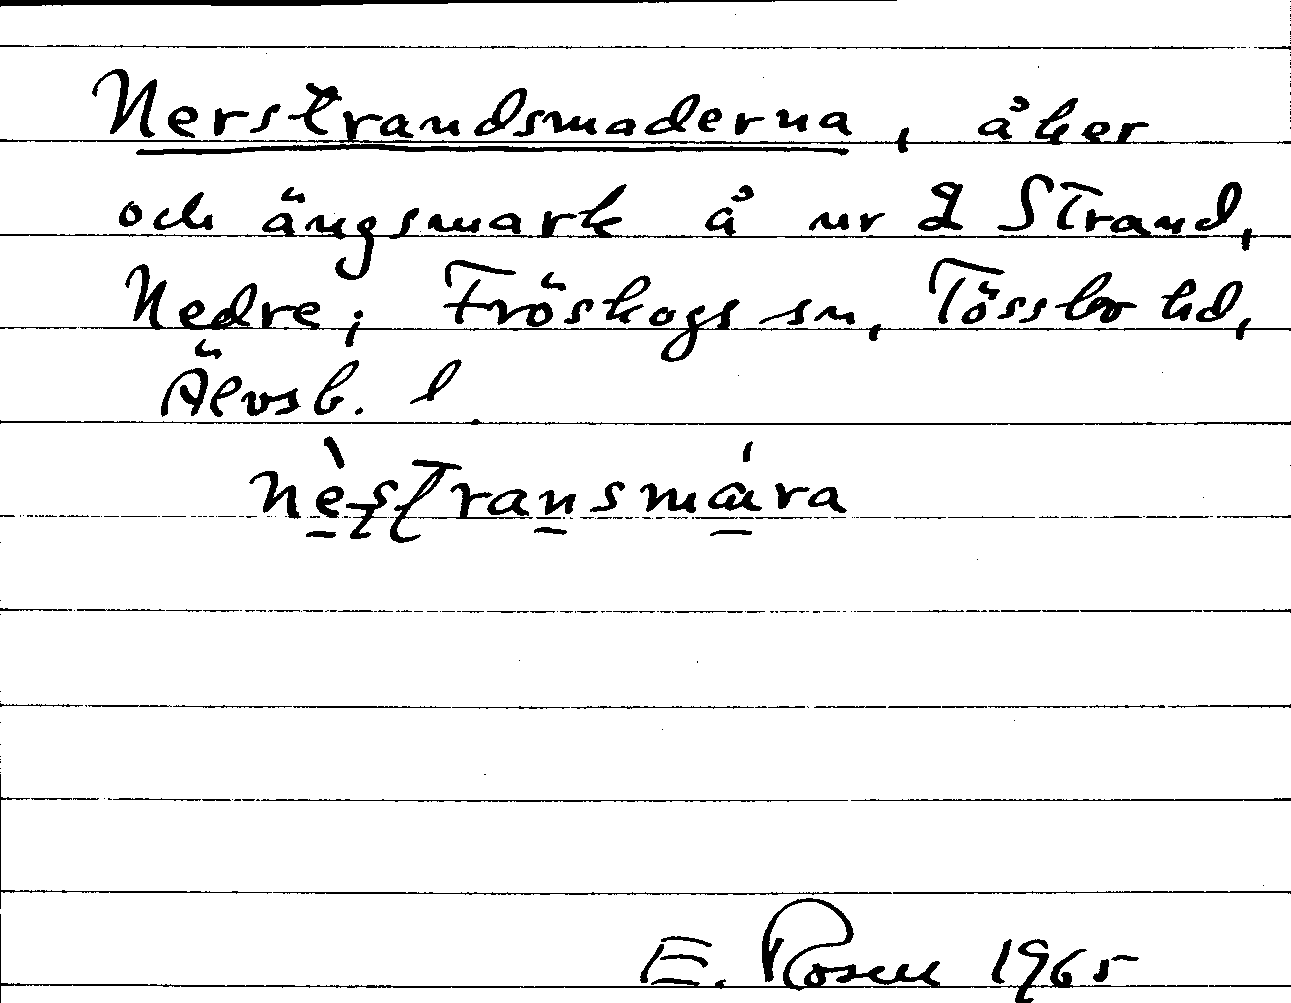 Nerstrandsmaderna, åker
och ängsmark å nr 2 Strand,
Nedre; Fröskogs sn, Tössbo hd,
Älvsb. l
nèstransmára
E. Rosen 1965